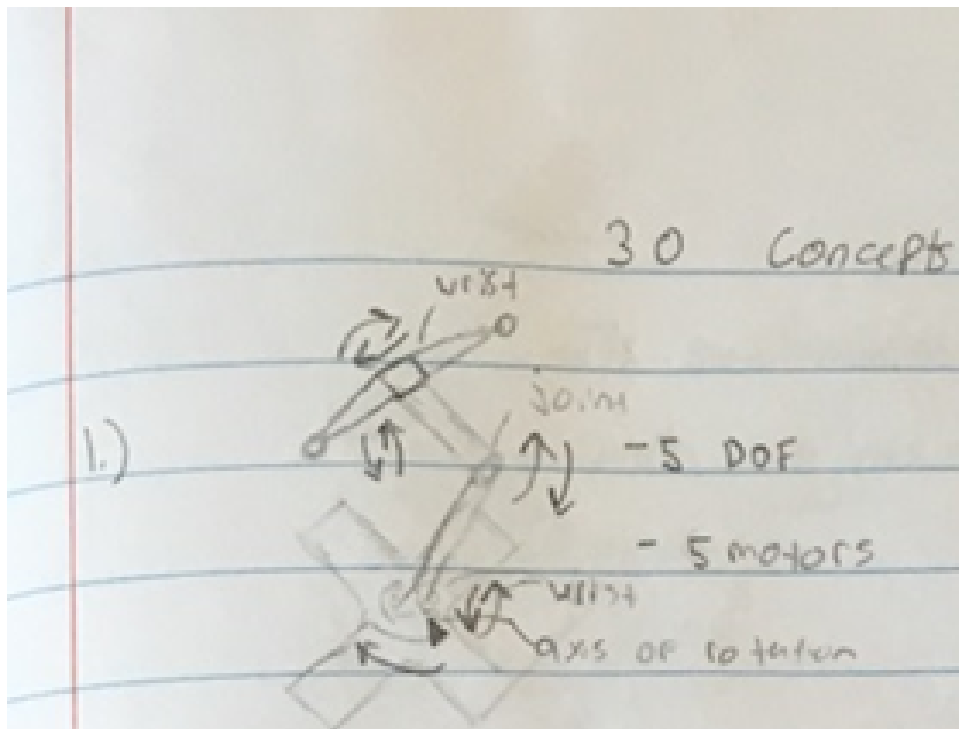 30 Concepts
wrist
Joint
1.)
-5 DOF
- 5 motors
wrist
axis of rotation